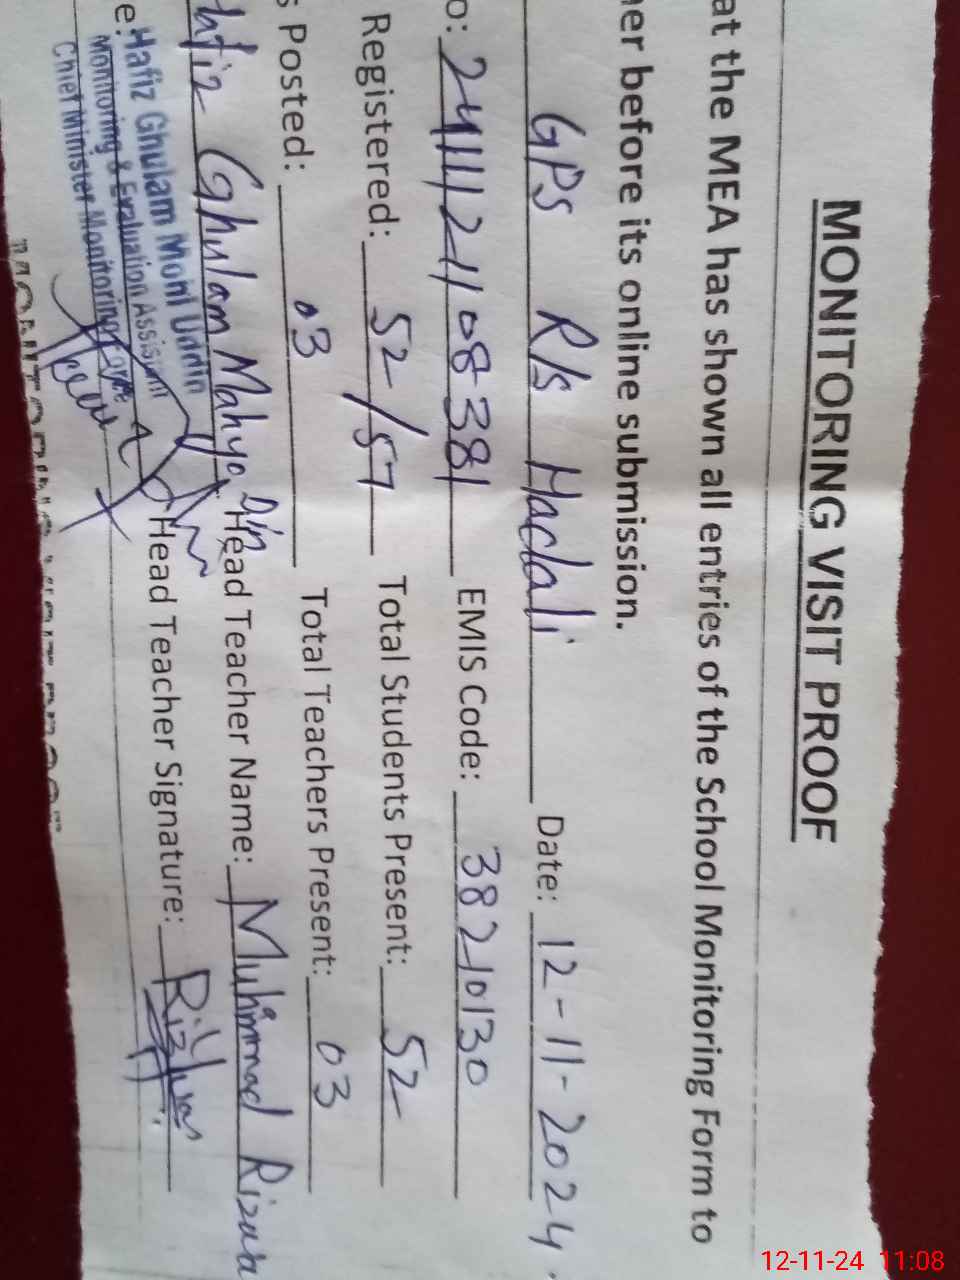 MONITORING VISIT PROOF
at the MEA has shown all entries of the School Monitoring Form to
her before its online submission.
GPS R/S Hadali Date: 12-11-2024
o: 2411121108381 EMIS Code: 38210130
Registered: 52/57 Total Students Present: 52
s Posted: 03 Total Teachers Present: 03
hfiz Ghulam Mahyo Din Head Teacher Name: Muhammad Rizwa
e: Head Teacher Signature:
Hafiz Ghulam Mohi Uddin
Monitoring & Evaluation Assistant
Chief Minister Monitoring
MONITORING VISIT PROOF
12-11-24 11:08